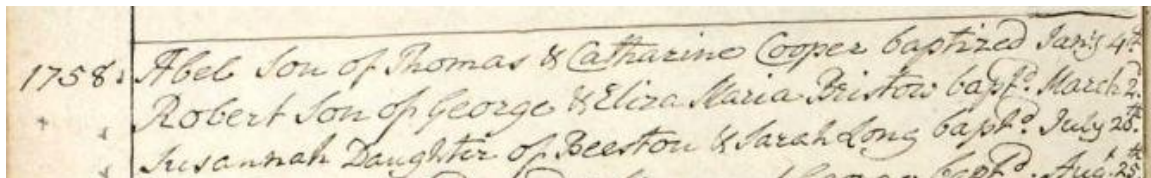 1758. Abel Son of Thomas & Catharine Cooper baptized Jan:y 4th
Robert Son of George & Eliza Maria Bristow bapt:d March 2d.
Susannah Daughter of Beeston & Sarah Long bapt:d July 28th.
bapt:d. Aug:t 25th